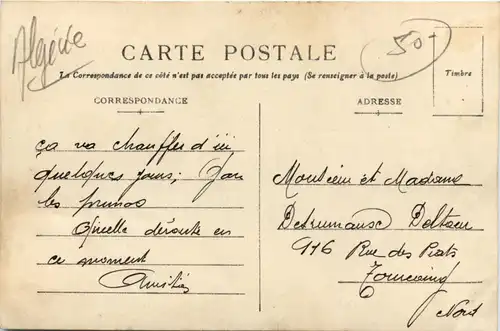 Algérie
50-
CARTE POSTALE
La Correspondance de ce côté n'est pas acceptée par tous les pays (Se renseigner à la poste)
Timbre
CORRESPONDANCE
ça va chauffer d'ici
quelques jours;
les
Quelle déroute en
ce moment
Amitiés
ADRESSE
Monsieur et Madame
916 Rue des Piats
Tourcoing
Nord